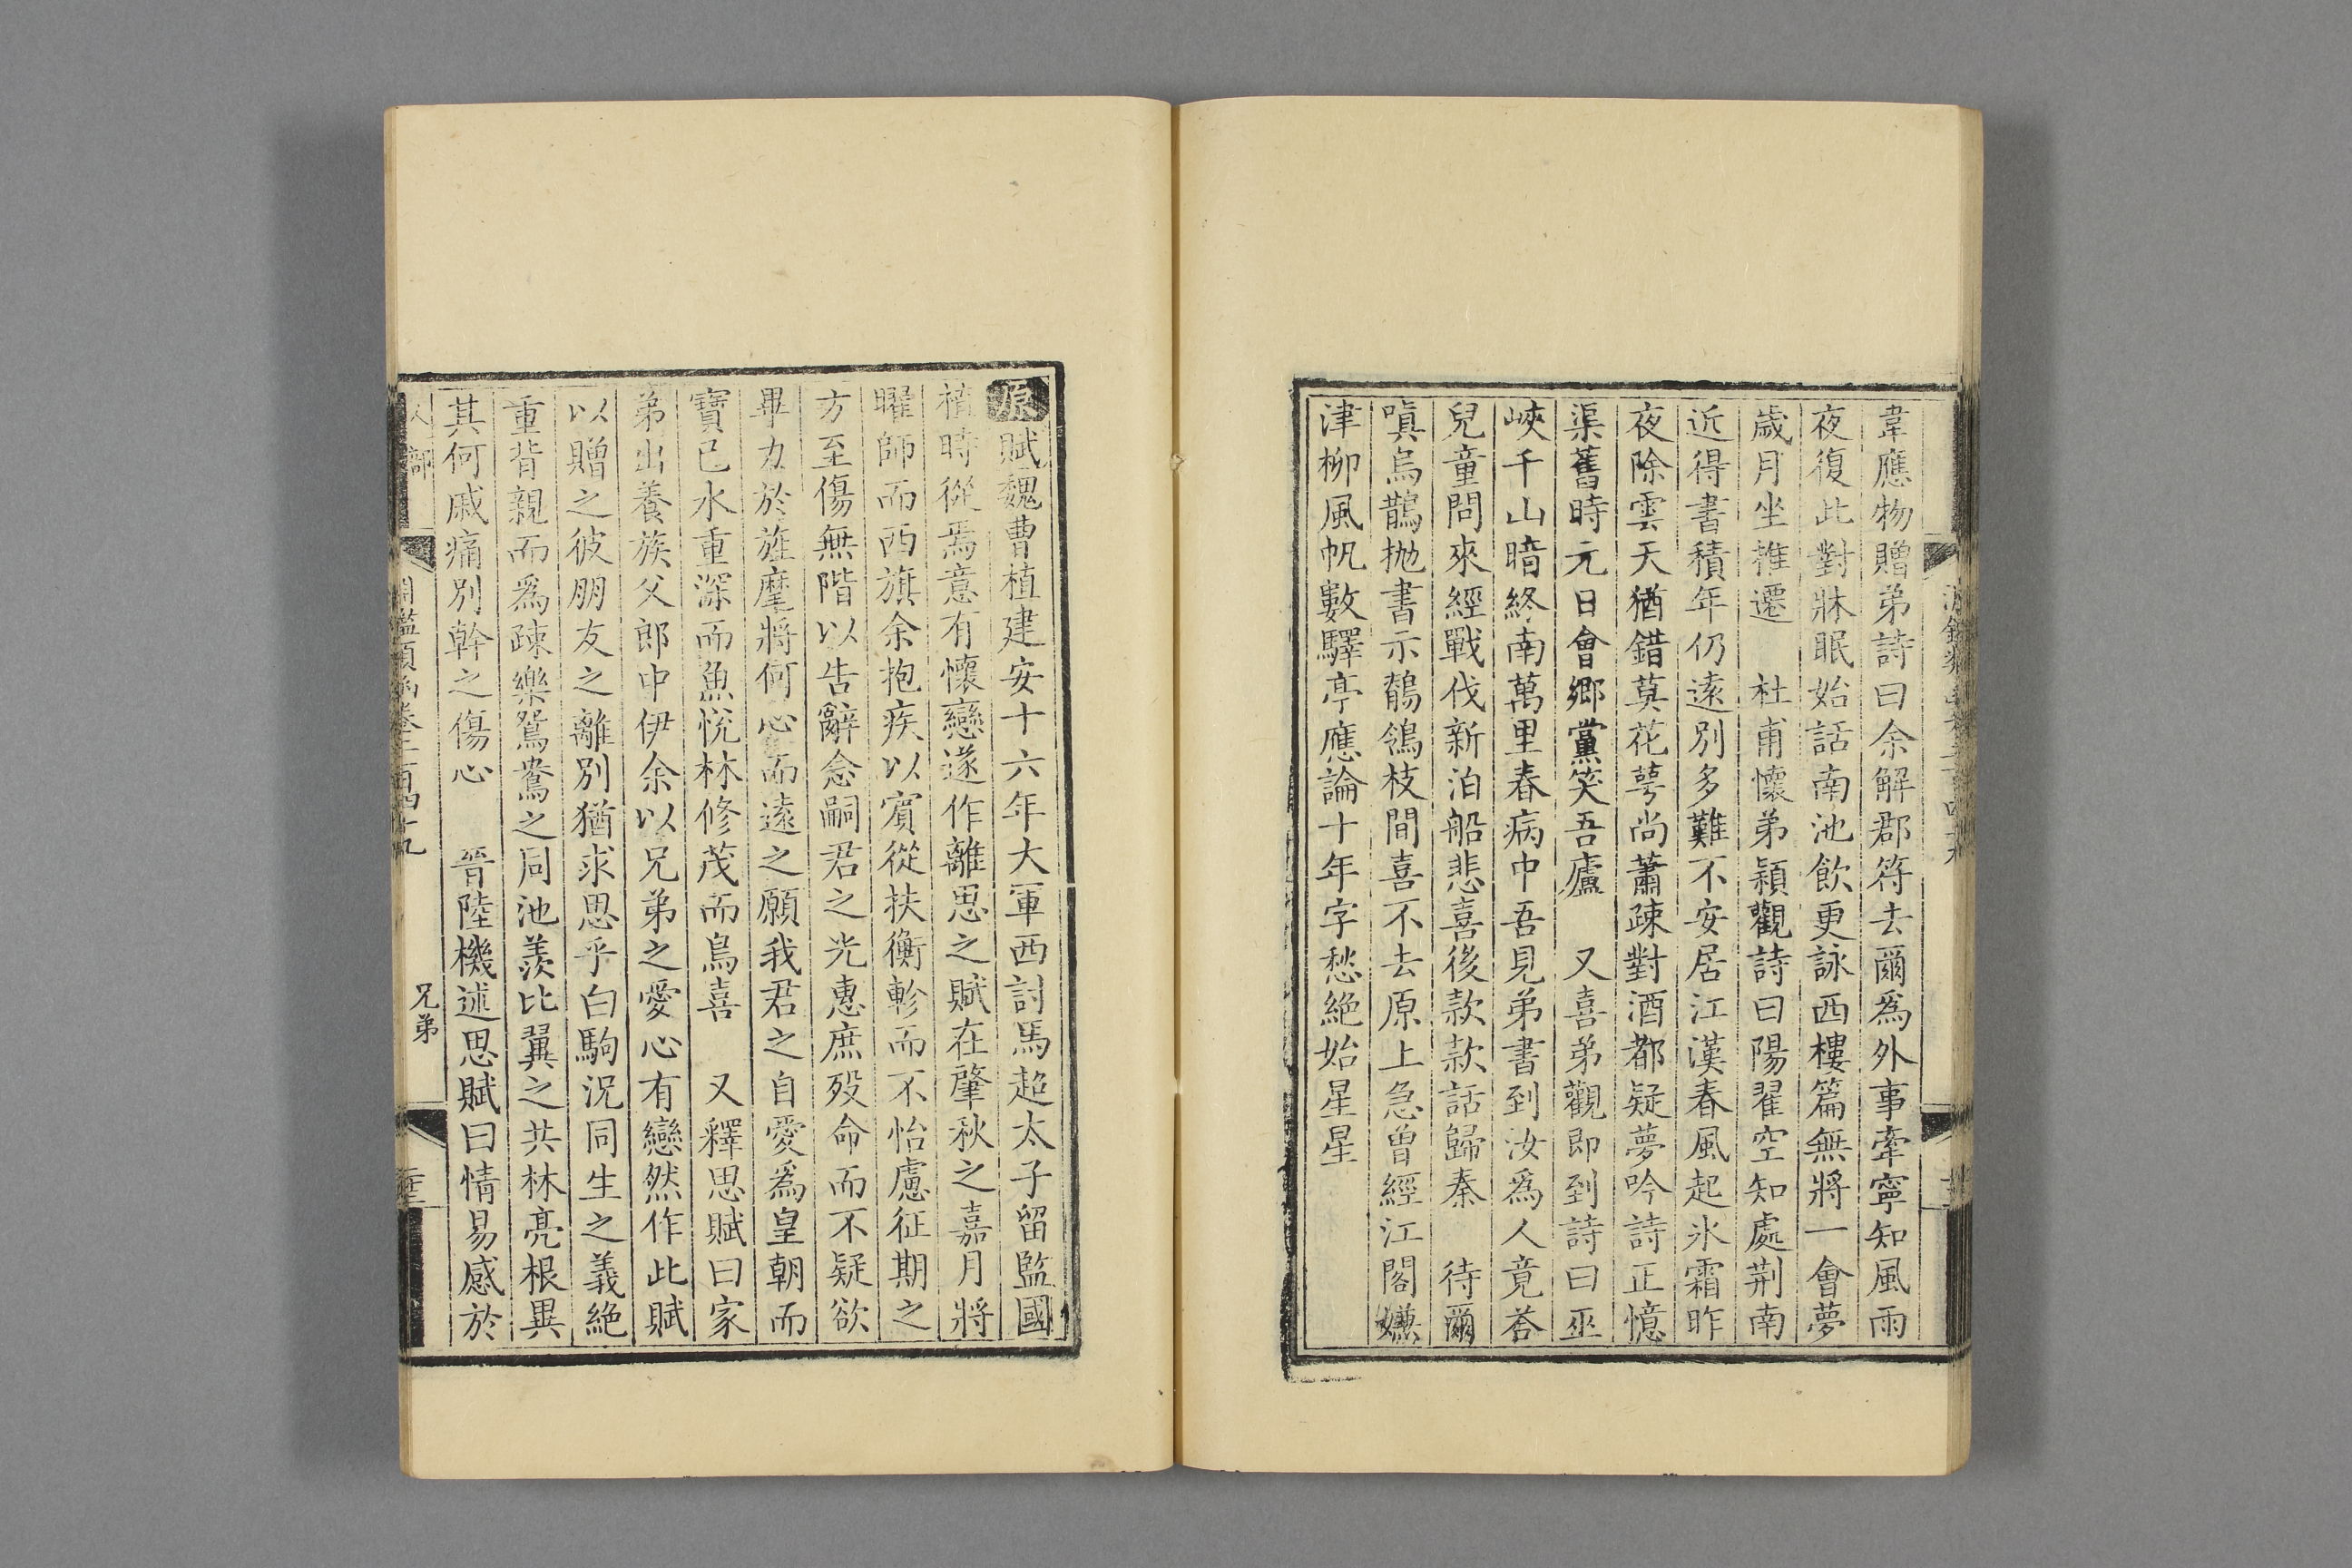 韋應物贈弟詩曰余解郡符去爾爲外事牽寧知風雨
夜復此對牀眠始話南池飲更詠西樓篇無將一會夢
歲月坐推遷　杜甫懷弟穎觀詩曰陽翟空知處荆南
近得書積年仍遠別多難不安居江漢春風起氷霜昨
夜除雲天猶錯莫花萼尚蕭疎對酒都疑夢吟詩正憶
渠舊時元日會鄉黨笑吾廬　又喜弟觀即到詩曰巫
峽千山暗終南萬里春病中吾見弟書到汝爲人竟答
兒童問來經戰伐新泊船悲喜後款款話歸秦　待爾
嗔烏鵲抛書示鶺鴒枝間喜不去原上急曾經江閣嫌
津柳風帆數驛亭應論十年字愁絶始星星
原賦魏曹植建安十六年大軍西討馬超太子留監國
植時從焉意有懷戀遂作離思之賦在肇秋之嘉月將
曜師而西旗余抱疾以賔從扶衡軫而不怡慮征期之
方至傷無階以告辭念嗣君之光惠庶殁命而不疑欲
畢力於旌麾將何心而遠之願我君之自愛爲皇朝而
寶己水重深而魚悅林修茂而鳥喜　又釋思賦曰家
弟出養族父郎中伊余以兄弟之愛心有戀然作此賦
以贈之彼朋友之離別猶求思乎白駒況同生之義絶
重背親而爲疎樂鴛鴦之同池羨比翼之共林亮根異
其何戚痛別幹之傷心　晉陸機述思賦曰情易感於
人部
淵鑑類函卷二百四十九
兄弟